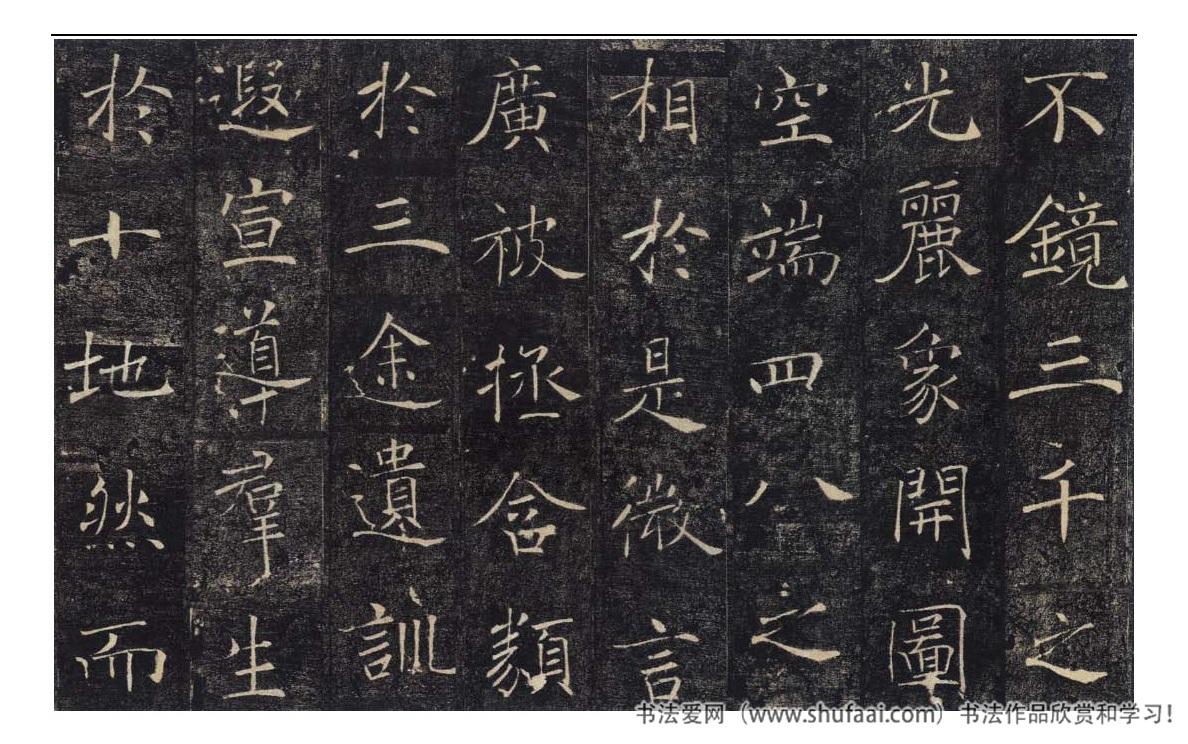 不鏡三千之
光麗象開圖
空端四八之
相於是微言
廣被拯含類
於三途遺訓
遐宣導羣生
於十地然而
书法爱网（www.shufaai.com）书法作品欣赏和学习！